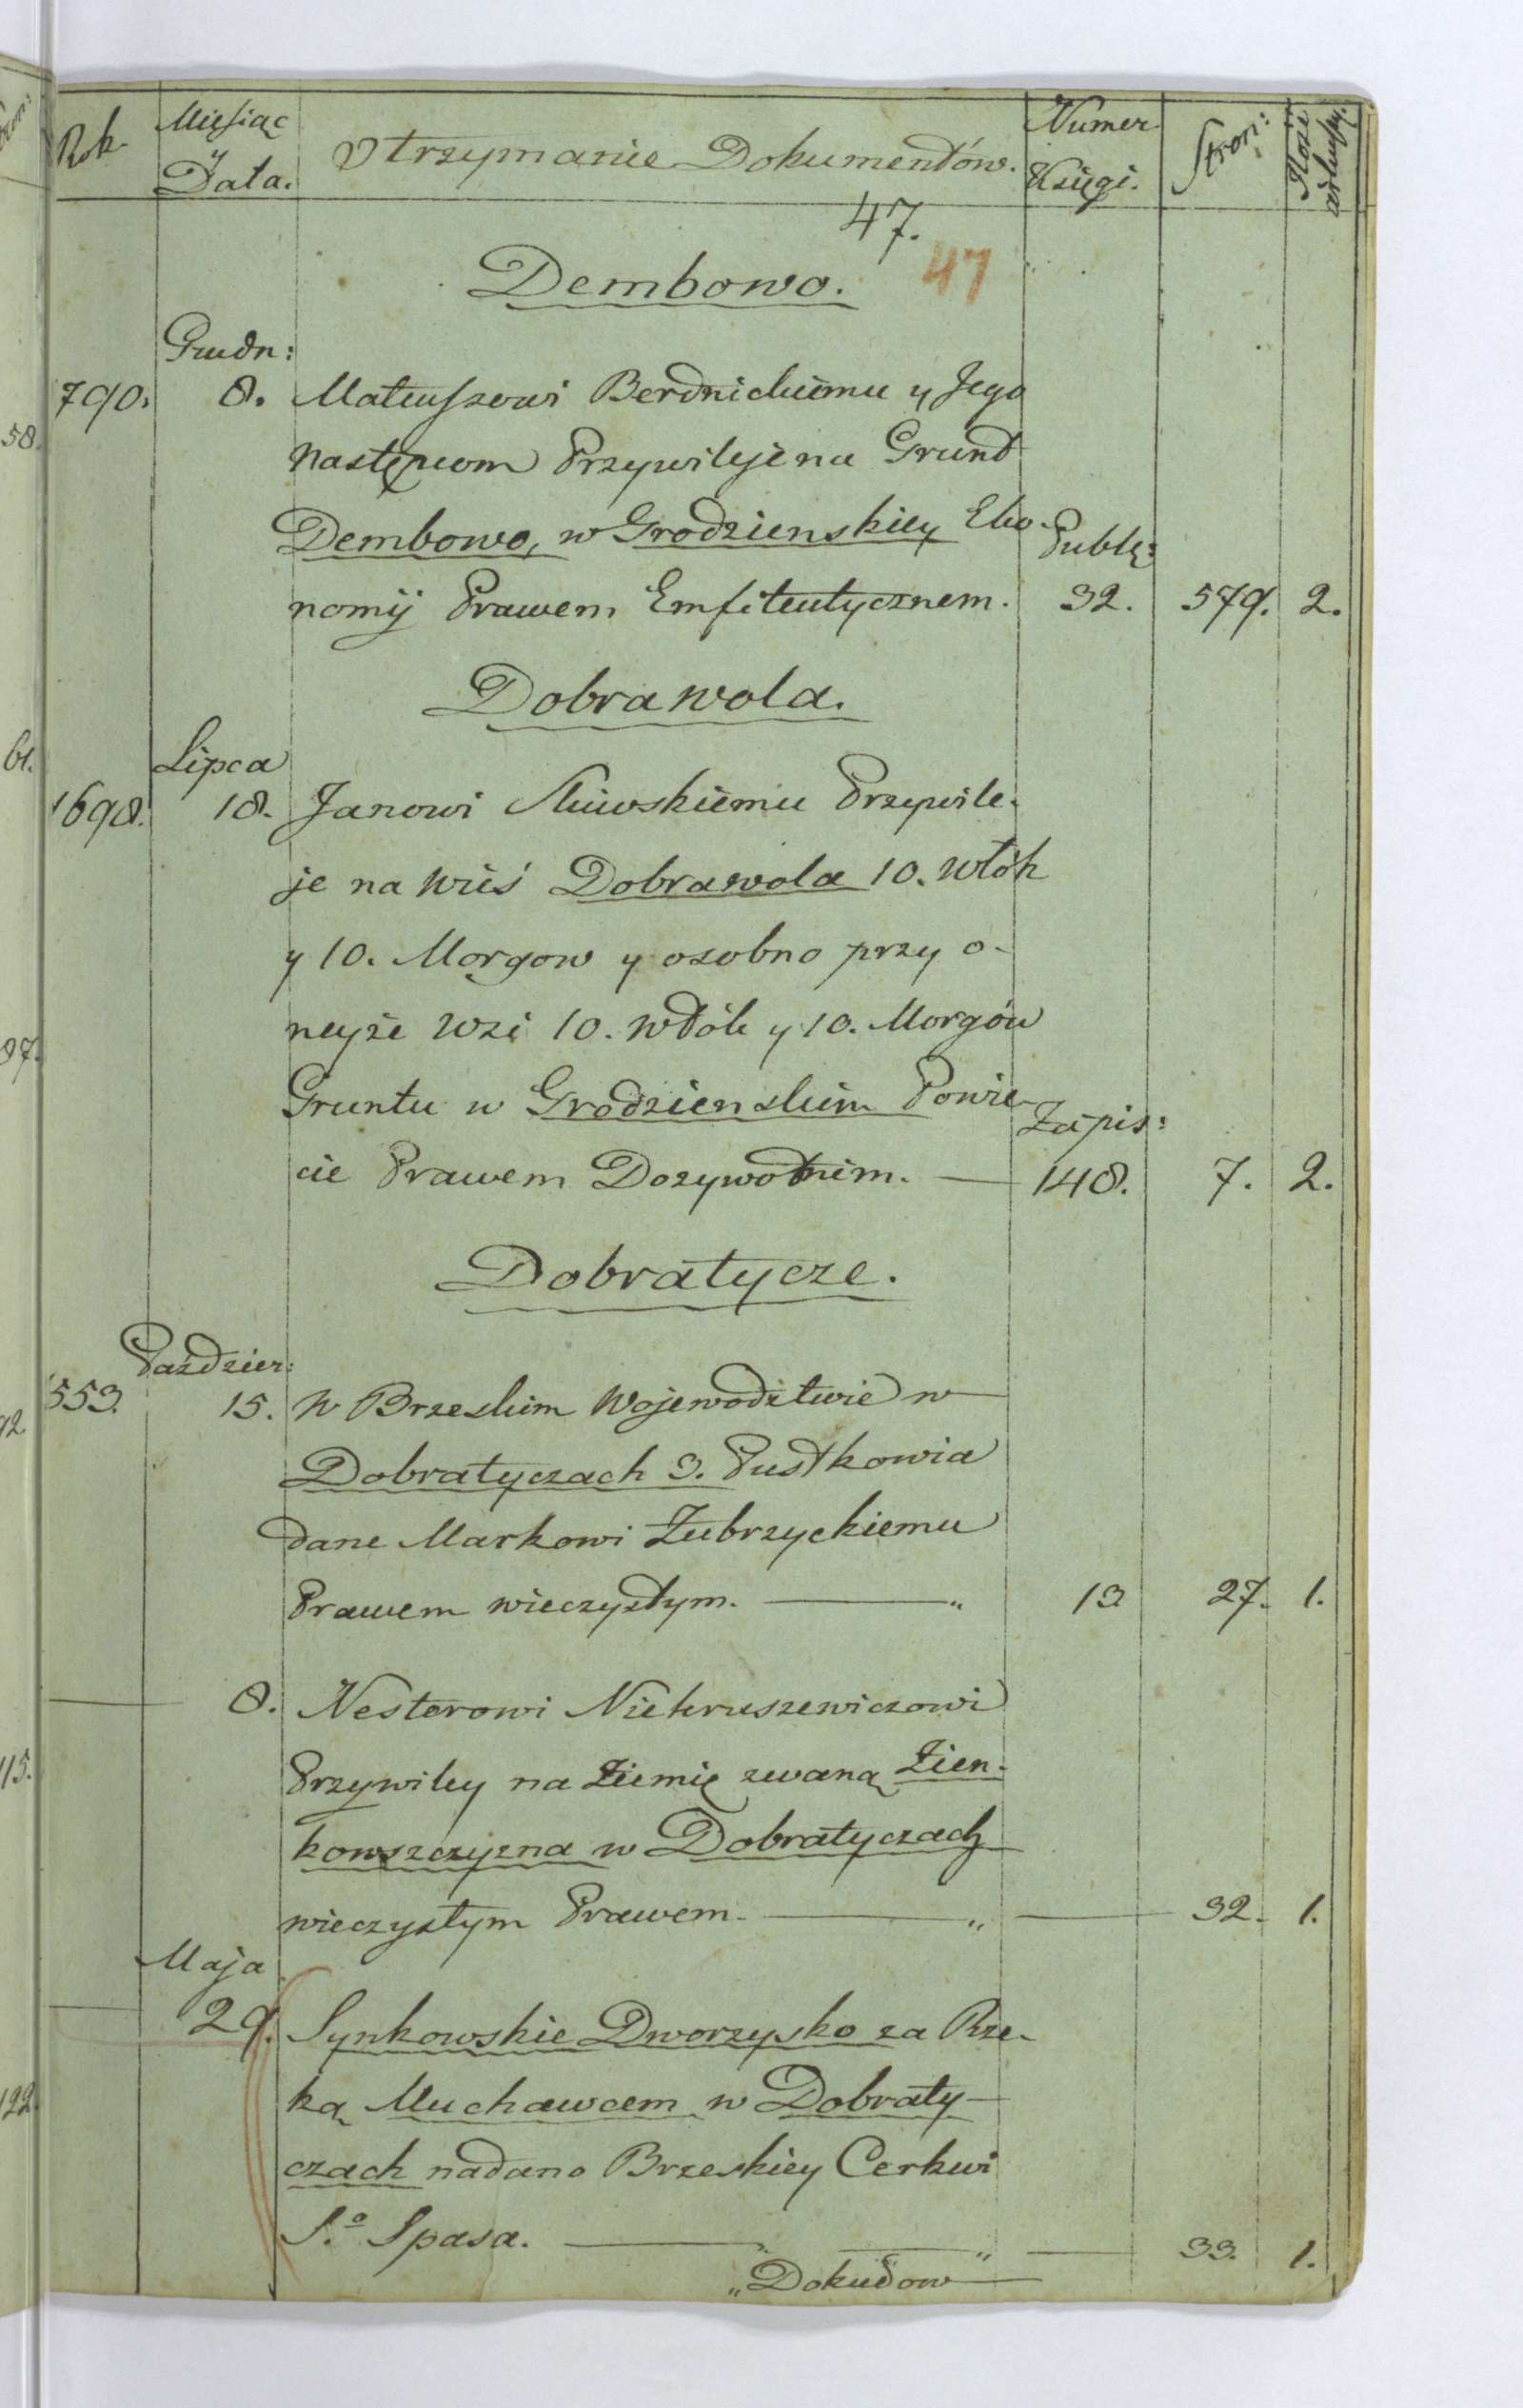 Rok
Miesiąc
y
Data.
Otrzymanie Dokumentów.
Numer
Księgi.
Stron:
47.
47
Dembowo.
Grudn:
790. 8. Mateuszowi Berdnickiemu y Jego
następcom Przywileje na Grunt
Dembowo, w Grodzienskiey Eko-
Publ:
nomij Prawem Emfiteutycznem. 32. 579. 2.
Dobrawola.
Lipca
1698. 18. Janowi Przywile-
je na wieś Dobrawola 10. włók
y 10. Morgow y osobno przy o-
neyże wsi 10. włók y 10. Morgów
Gruntu w Grodzienskim Powie-
Zapis:
cie Prawem Dozywotnim. — 148. 7. 2.
Dobratycze.
Paździer:
553. 15. w Brzeskim Wojewodztwie w
Dobratyczach 3. Pustkowia
dane Markowi Zubrzyckiemu
Prawem wieczystym. — „ 13 27. 1.
8. Nesterowi Niekruszewiczowi
Przywiley na Ziemię zwaną Zien-
kowszczyzna w Dobratyczach
wieczystym Prawem. — „ — 32. 1.
Maja
29. Synkowskie Dworzysko za Rze-
ką Muchawcem w Dobraty-
czach nadano Brzeskiey Cerkwi
S.º Spasa. — „ — 33. 1.
„Dokudow